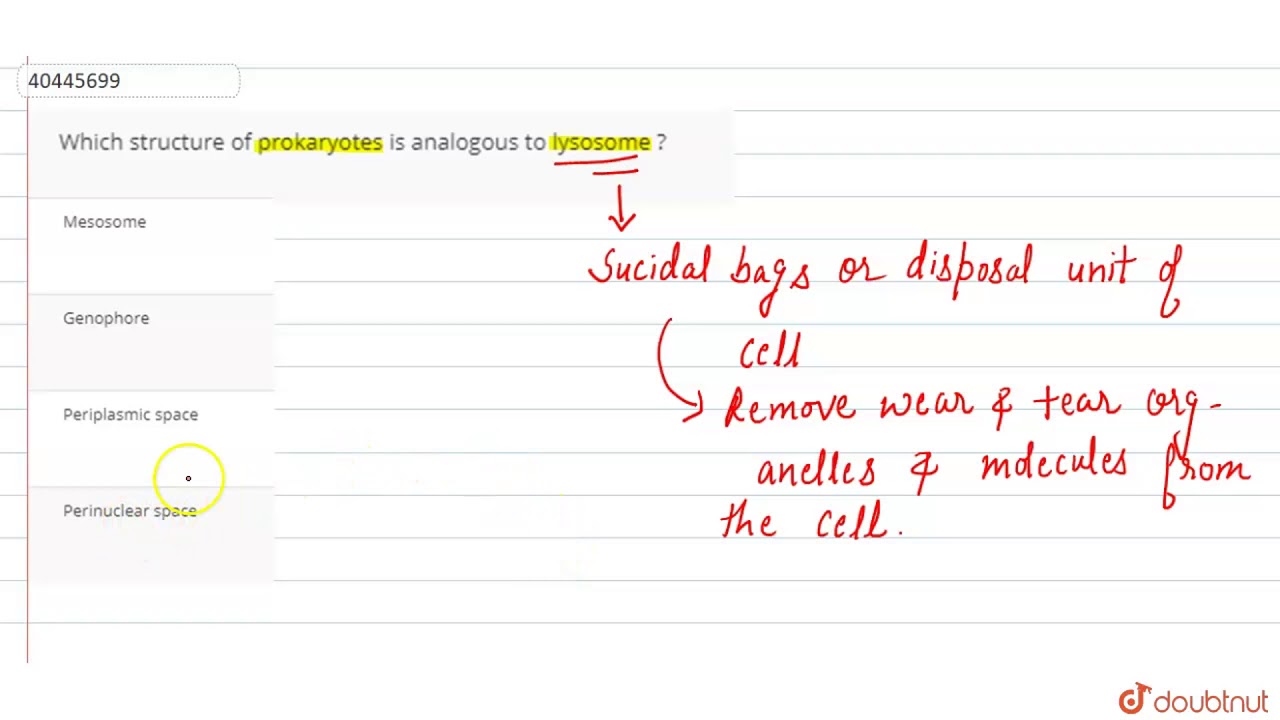 40445699
Which structure of prokaryotes is analogous to lysosome ?
Mesosome
Genophore
Periplasmic space
Perinuclear space
Sucidal bags or disposal unit of
cell
Remove wear & tear org-
anelles & molecules from
the cell.
doubtnut